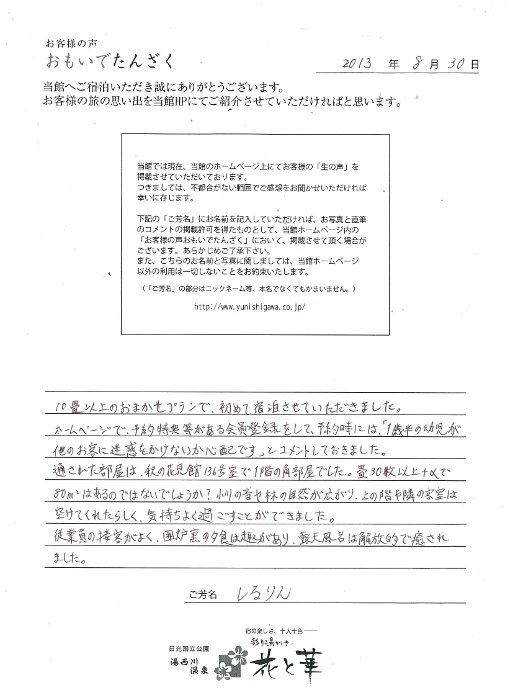 お客様の声
おもいでたんざく
2013 年 8 月 30 日
当館へご宿泊いただき誠にありがとうございます。
お客様の旅の思い出を当館HPにてご紹介させていただければと思います。
当館では現在、当館のホームページ上にてお客様の「生の声」を
掲載させていただいております。
つきましては、不都合がない範囲でご感想をお聞かせいただければ
幸いに存じます。
下記の「ご芳名」にお名前を記入していただければ、お写真と直筆
のコメントの掲載許可を得たものとして、当館ホームページ内の
「お客様の声おもいでたんざく」において、掲載させて頂く場合が
ございます。あらかじめご了承下さい。
また、こちらのお名前と写真に関しましては、当館ホームページ
以外の利用は一切しないことをお約束いたします。
（「ご芳名」の部分はニックネーム等、本名でなくてもかまいません。）
http://www.yunishigawa.co.jp/
10畳以上のおまかせプランで、初めて宿泊させていただきました。
ホームページで、予約特典等がある会員登録をして、予約時には、「1歳半の幼児が
他のお客に迷惑をかけないか心配です」とコメントしておきました。
通された部屋は、秋の花見館136号室で1階の角部屋でした。畳30枚以上+αで
80m²はあるのではないでしょうか?小川の音や林の自然が広がり、上の階や隣の客室は
空けてくれたらしく、気持ちよく過ごすことができました。
従業員の接客がよく、囲炉裏の夕食は趣があり、露天風呂は解放的で癒され
ました。
ご芳名 しるりん
宿の楽しさ、十人十色──
日光国立公園
湯西川
温泉
花と華